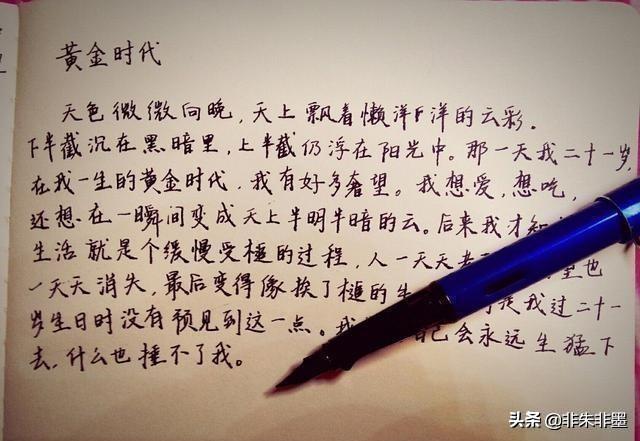 黄金时代
天色微微向晚，天上飘着懒洋洋的云彩。
下半截沉在黑暗里，上半截仍浮在阳光中。那一天我二十一岁，
在我一生的黄金时代，我有好多奢望。我想爱，想吃，
还想在一瞬间变成天上半明半暗的云。后来我才知
生活就是个缓慢受槌的过程，人一天天
也
一天天消失，最后变得像挨了槌的牛
是我过二十一
岁生日时没有预见到这一点。我
己会永远生猛下
去，什么也捶不了我。
头条 @非朱非墨